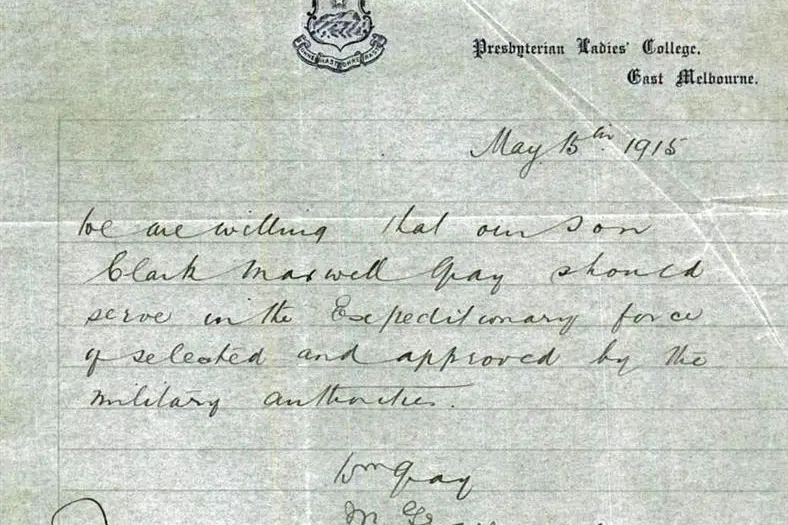 Presbyterian Ladies' College.
East Melbourne.
May 15th 1915
We are willing that our son
Clark Maxwell Gray should
serve in the Expeditionary force
if selected and approved by the
military authorities.
Wm Gray
M